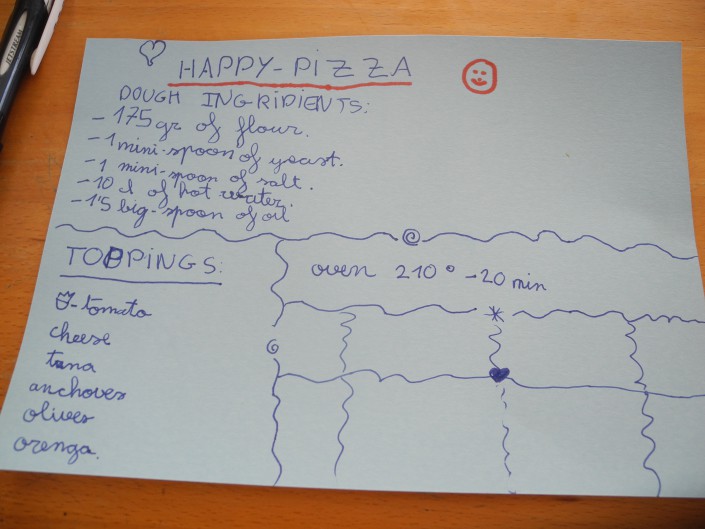 HAPPY-PIZZA
DOUGH INGRIDIENTS:
- 175 gr of flour.
- 1 mini-spoon of yeast.
- 1 mini-spoon of salt.
- 10 l of hot water.
- 1'5 big-spoon of oil
TOPPINGS:
oven 210° - 20 min
-tomato
cheese
tuna
anchoves
olives
orenga.